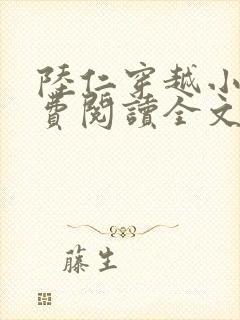 陸仁穿越小
費閱讀全文
藤生